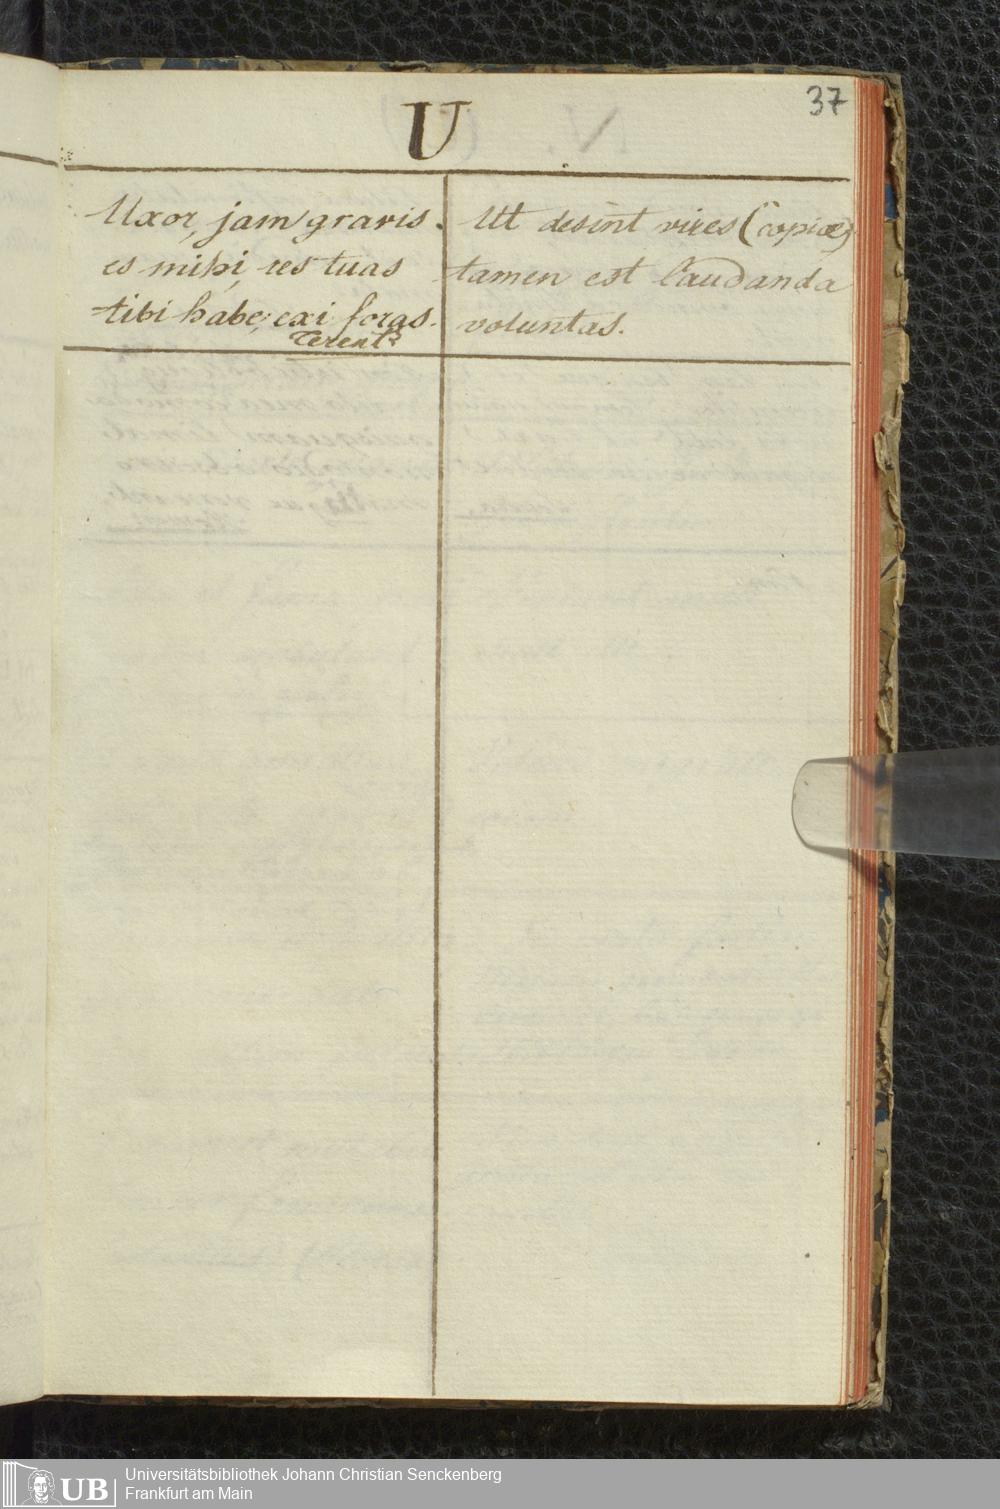 37
U
Uxor, jam gravis
es mihi, res tuas
tibi habe; exi foras.
Terent.
Ut desint vires (copiæ)
tamen est laudanda
voluntas.
UB
Universitätsbibliothek Johann Christian Senckenberg
Frankfurt am Main